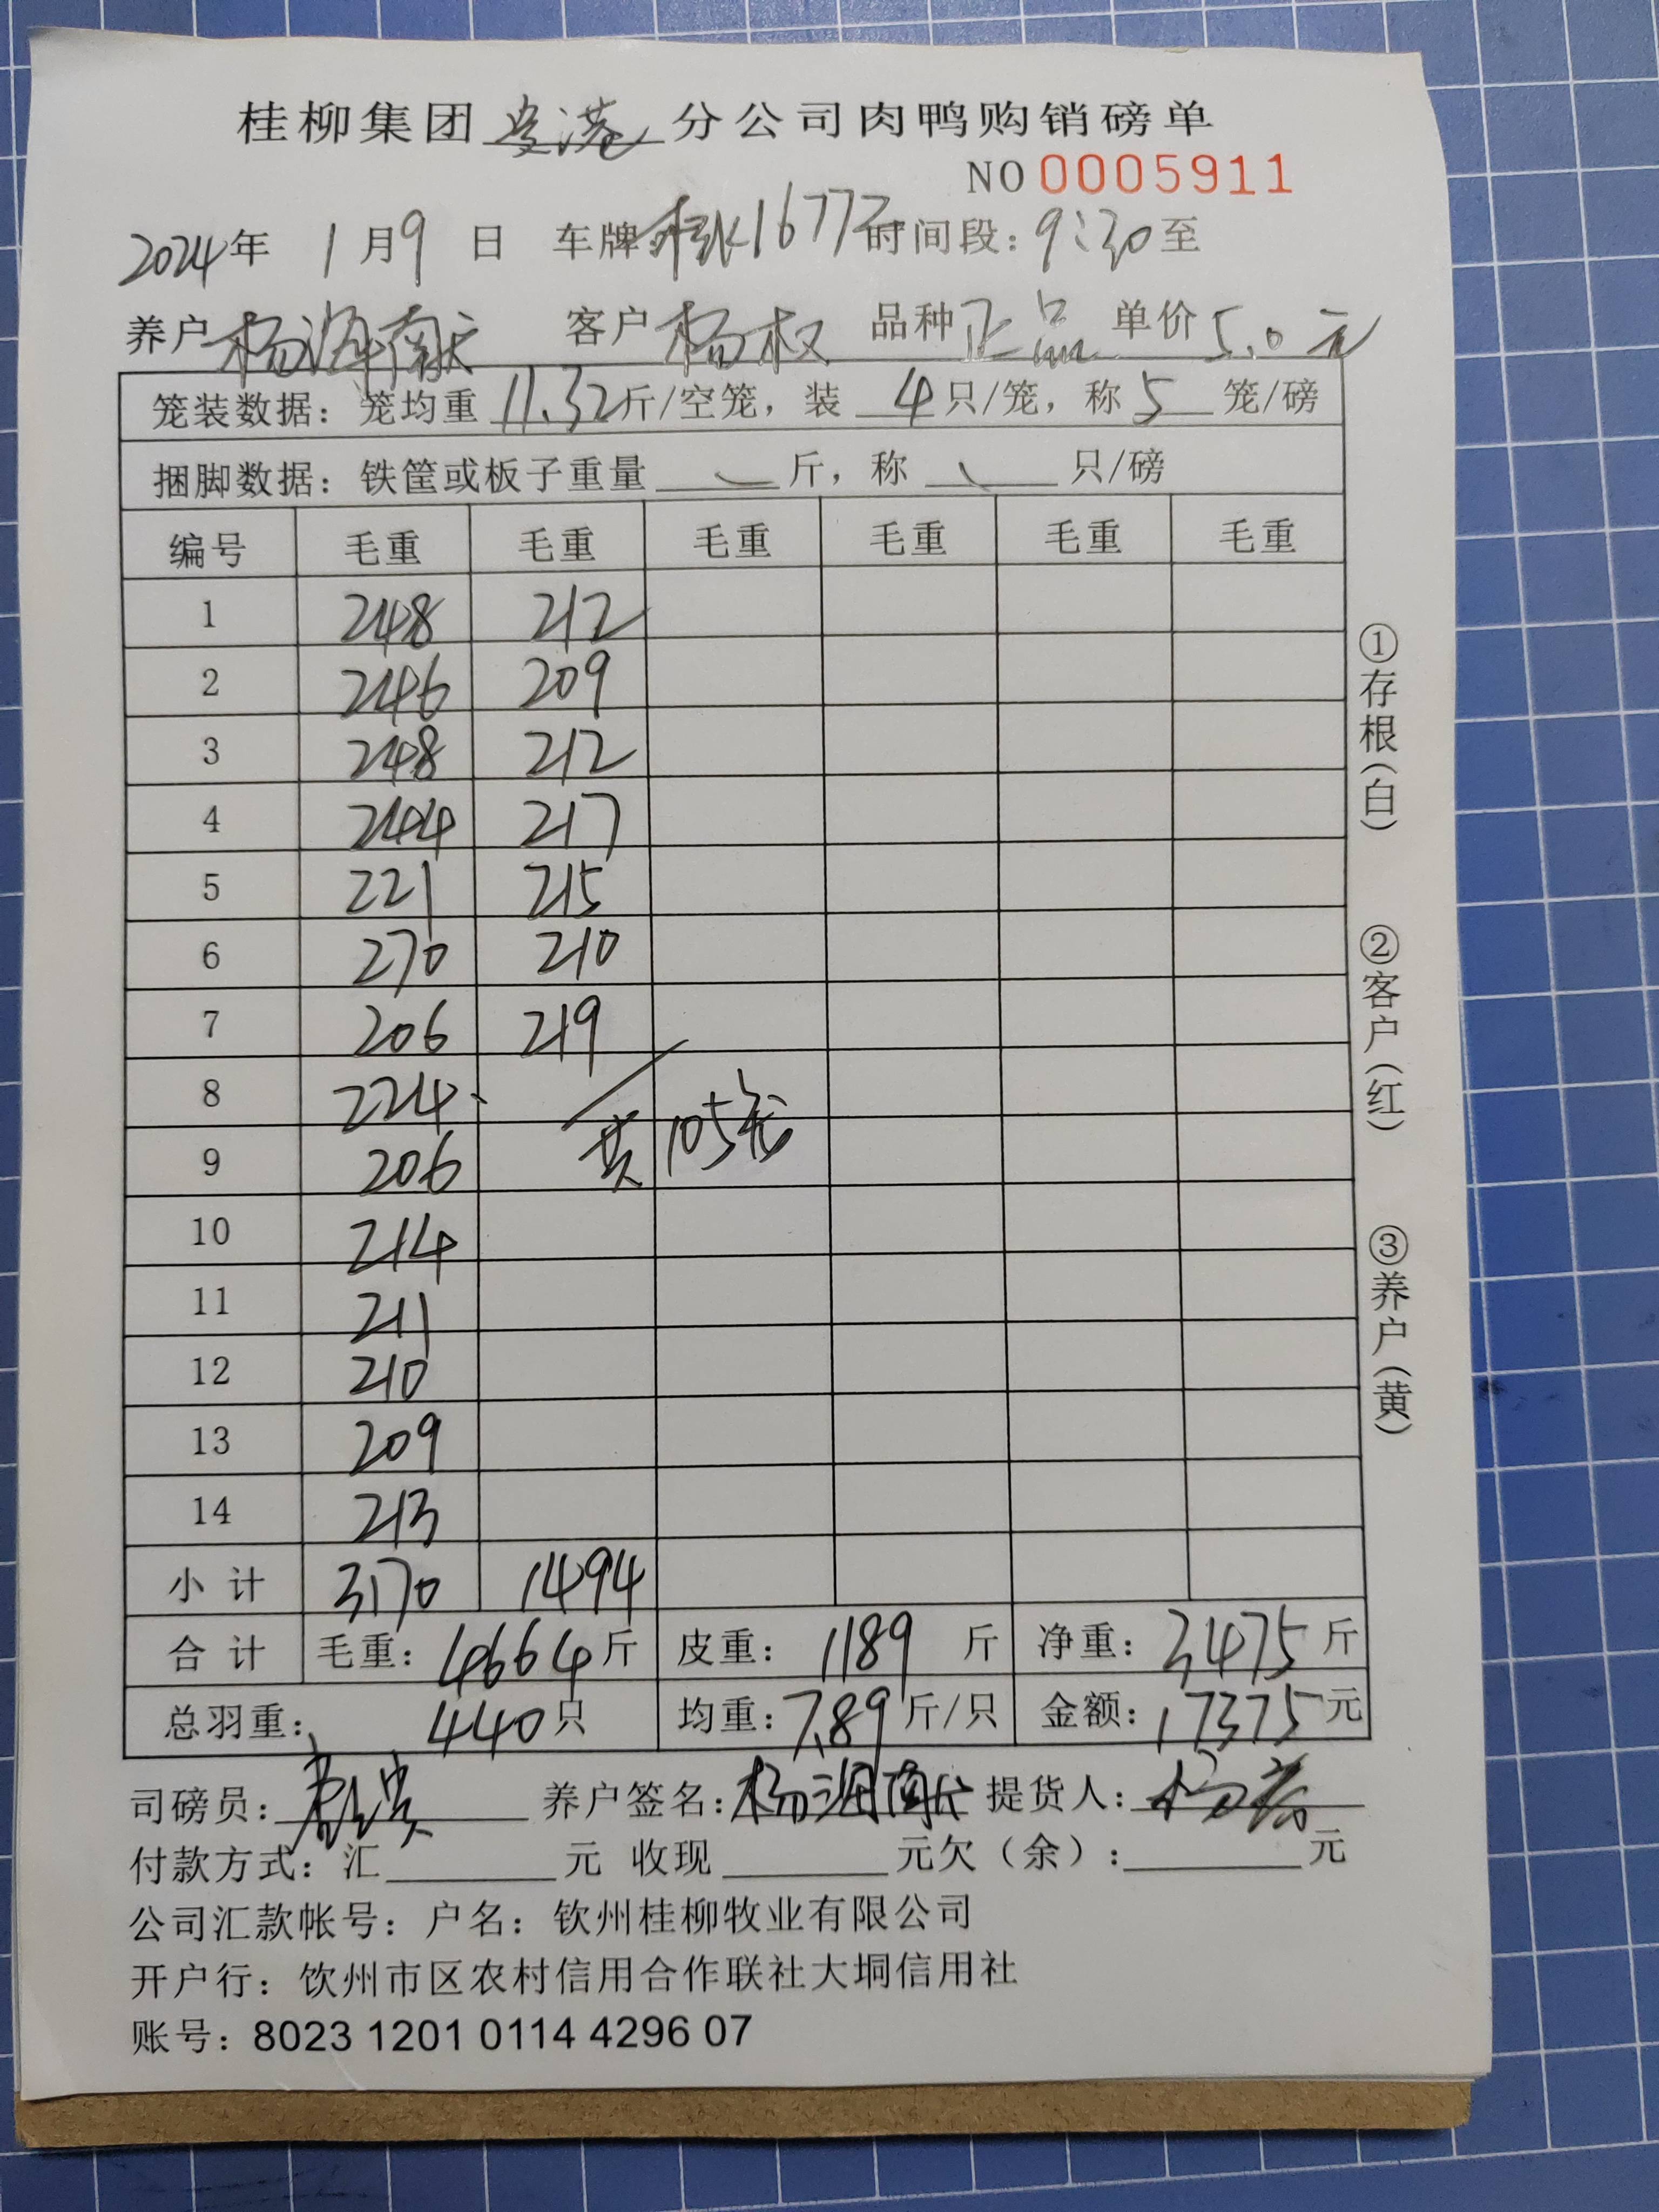 桂柳集团贵港分公司肉鸭购销磅单
NO 0005911
2024年 1月9日 车牌 16777 时间段：9:30至
养户 杨海南 客户 杨权 品种 正品 单价 5.0元
笼装数据：笼均重 11.32斤/空笼，装 4只/笼，称 5 笼/磅
捆脚数据：铁筐或板子重量 斤，称 只/磅
编号 毛重 毛重 毛重 毛重 毛重 毛重
1 248 212
2 246 209
3 248 212
4 244 217
5 221 215
6 270 210
7 206 219
8 224
9 206 共105笼
10 214
11 211
12 210
13 209
14 213
小计 3170 1494
合计 毛重：4664斤 皮重：1189 斤 净重：3475斤
总羽重： 440只 均重：7.89斤/只 金额：17375元
司磅员： 养户签名：杨海南 提货人：杨
付款方式：汇 元 收现 元欠（余）： 元
公司汇款帐号：户名：钦州桂柳牧业有限公司
开户行：饮州市区农村信用合作联社大垌信用社
账号：8023 1201 0114 4296 07
①存根（白）
②客户（红）
③养户（黄）